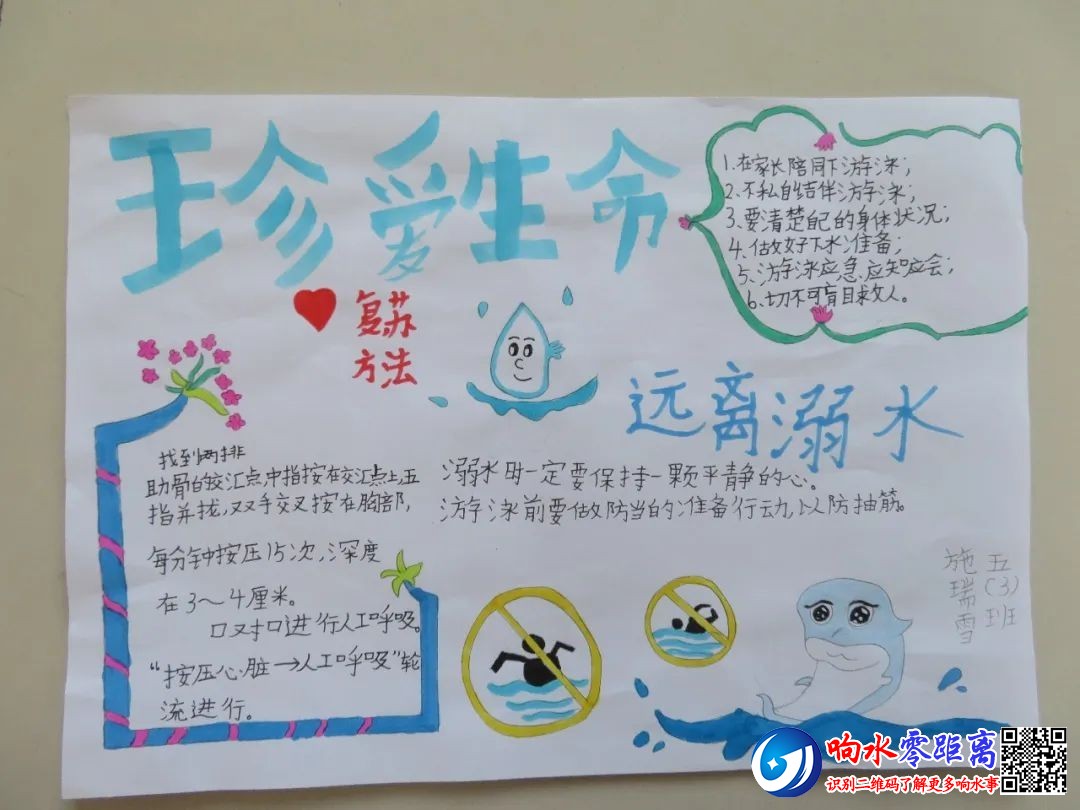 珍爱生命
1.在家长陪同下游泳；
2、不私自结伴游泳；
3、要清楚自己的身体状况；
4、做好下水准备；
5、游泳应急,应知应会；
6、切不可盲目救人。
复苏
方法
远离溺水
找到两排
肋骨的交汇点,中指按在交汇点上,五
指并拢,双手交叉按在胸部,
每分钟按压15次,深度
在3～4厘米。
口对口进行人工呼吸。
“按压心脏→人工呼吸”轮
流进行。
溺水时一定要保持一颗平静的心。
游泳前要做防当的准备行动,以防抽筋。
五(3)班
施瑞雪
响水零距离
识别二维码了解更多响水事